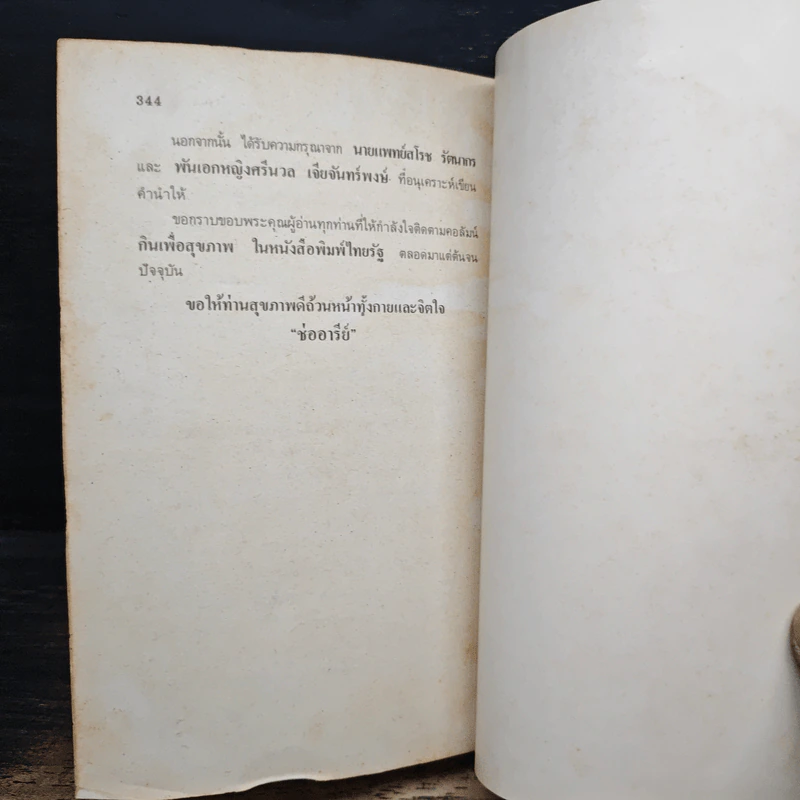 344
นอกจากนั้น ได้รับความกรุณาจาก นายแพทย์สโรช รัตนากร
และ พันเอกหญิงศรีนวล เจียจันทร์พงษ์ ที่อนุเคราะห์เขียน
คำนำให้
ขอกราบขอบพระคุณผู้อ่านทุกท่านที่ให้กำลังใจติดตามคอลัมน์
กินเพื่อสุขภาพ ในหนังสือพิมพ์ไทยรัฐ ตลอดมาแต่ต้นจน
ปัจจุบัน
ขอให้ท่านสุขภาพดีถ้วนหน้าทั้งกายและจิตใจ
"ช่ออารีย์"